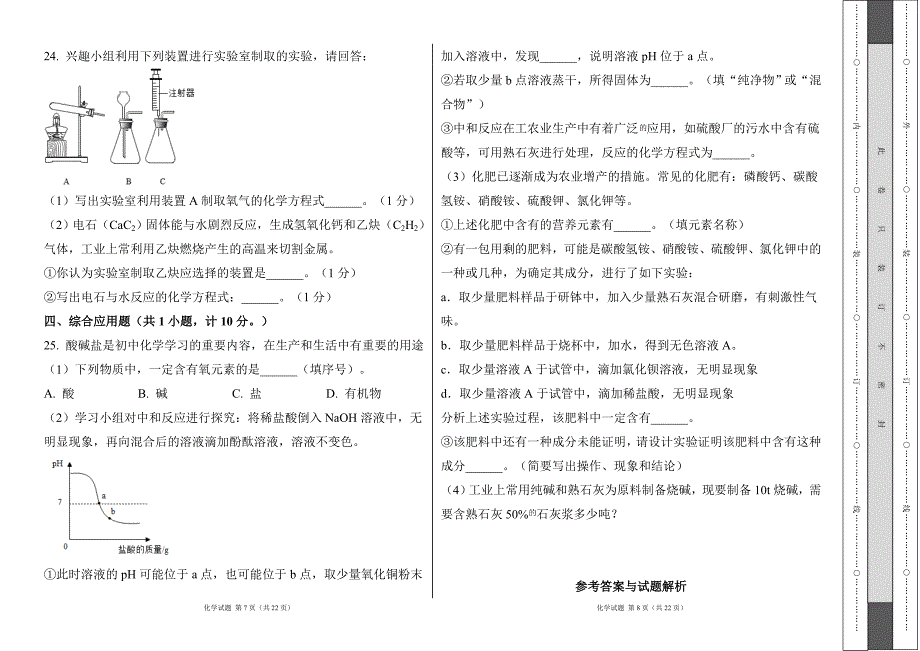 24. 兴趣小组利用下列装置进行实验室制取的实验，请回答：
注射器
A B C
（1）写出实验室利用装置 A 制取氧气的化学方程式______。（1 分）
（2）电石（CaC2）固体能与水剧烈反应，生成氢氧化钙和乙炔（C2H2）
气体，工业上常利用乙炔燃烧产生的高温来切割金属。
①你认为实验室制取乙炔应选择的装置是______。（1 分）
②写出电石与水反应的化学方程式：______。（1 分）
四、综合应用题（共 1 小题，计 10 分。）
25. 酸碱盐是初中化学学习的重要内容，在生产和生活中有重要的用途
（1）下列物质中，一定含有氧元素的是______（填序号）。
A. 酸 B. 碱 C. 盐 D. 有机物
（2）学习小组对中和反应进行探究：将稀盐酸倒入 NaOH 溶液中，无
明显现象，再向混合后的溶液滴加酚酞溶液，溶液不变色。
pH
7
a
b
0
盐酸的质量/g
①此时溶液的 pH 可能位于 a 点，也可能位于 b 点，取少量氧化铜粉末
化学试题 第 7 页（共 22 页）
加入溶液中，发现______，说明溶液 pH 位于 a 点。
②若取少量 b 点溶液蒸干，所得固体为______。（填“纯净物”或“混
合物”）
③中和反应在工农业生产中有着广泛的应用，如硫酸厂的污水中含有硫
酸等，可用熟石灰进行处理，反应的化学方程式为______。
（3）化肥已逐渐成为农业增产的措施。常见的化肥有：磷酸钙、碳酸
氢铵、硝酸铵、硫酸钾、氯化钾等。
①上述化肥中含有的营养元素有______。（填元素名称）
②有一包用剩的肥料，可能是碳酸氢铵、硝酸铵、硫酸钾、氯化钾中的
一种或几种，为确定其成分，进行了如下实验：
a．取少量肥料样品于研钵中，加入少量熟石灰混合研磨，有刺激性气
味。
b．取少量肥料样品于烧杯中，加水，得到无色溶液 A。
c．取少量溶液 A 于试管中，滴加氯化钡溶液，无明显现象
d．取少量溶液 A 于试管中，滴加稀盐酸，无明显现象
分析上述实验过程，该肥料中一定含有______。
③该肥料中还有一种成分未能证明，请设计实验证明该肥料中含有这种
成分______。（简要写出操作、现象和结论）
（4）工业上常用纯碱和熟石灰为原料制备烧碱，现要制备 10t 烧碱，需
要含熟石灰 50%的石灰浆多少吨？
参考答案与试题解析
化学试题 第 8 页（共 22 页）
内 装 订 线
此卷只装订不密封
外 装 订 线